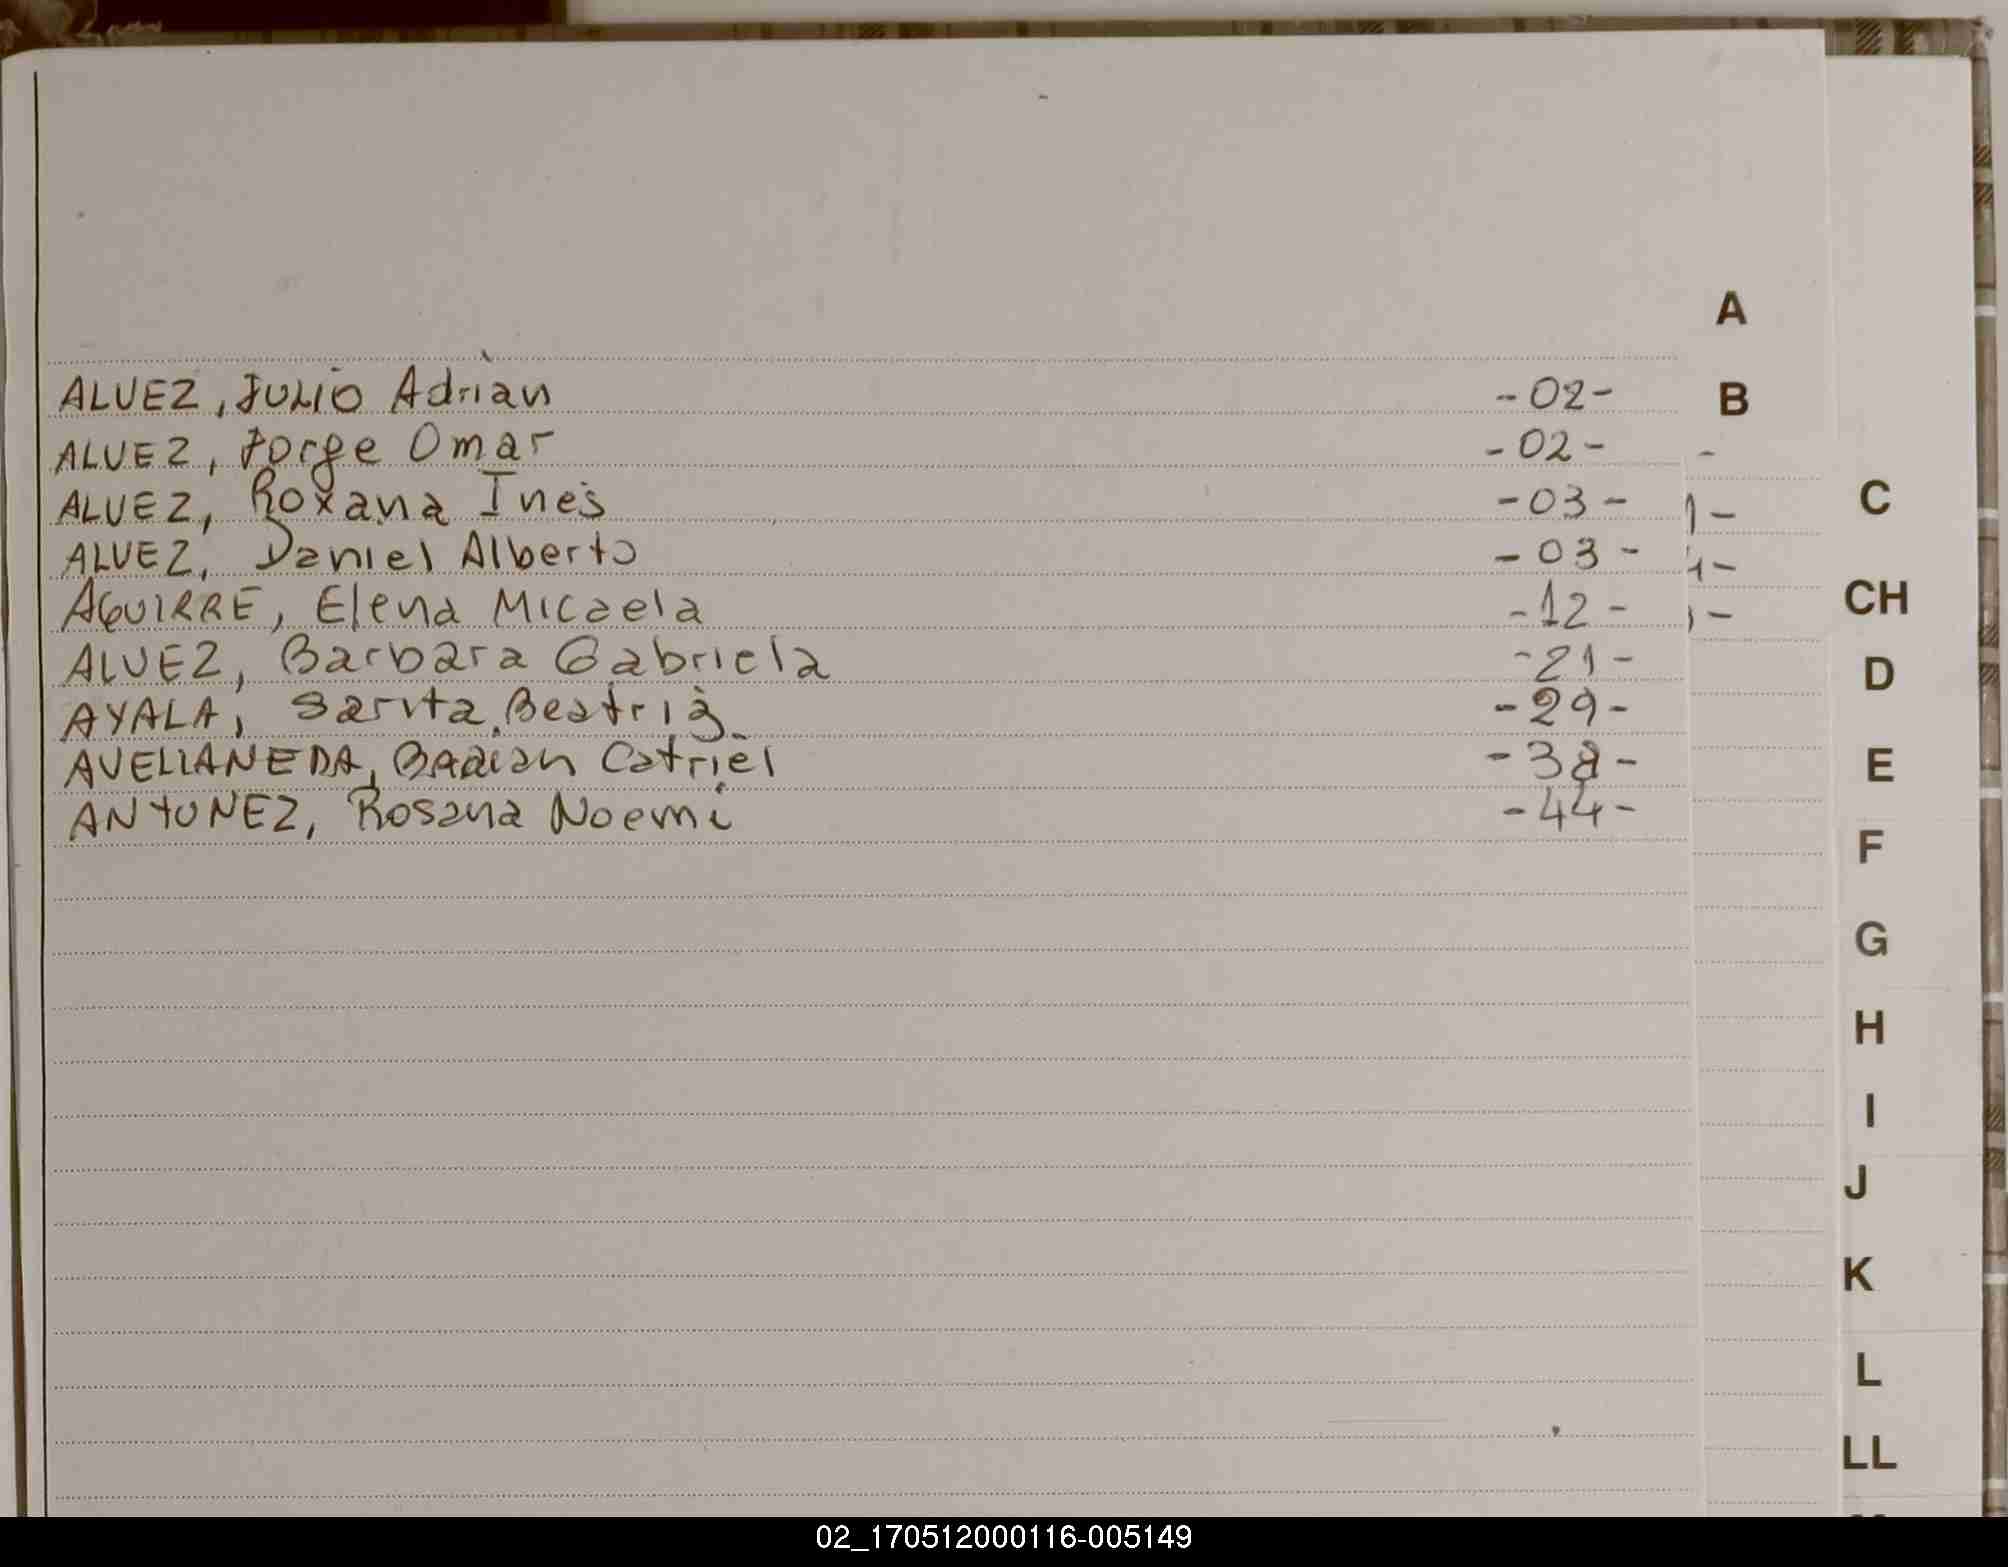 A
ALVEZ, JULIO Adrian -02-
B
ALVEZ, Jorge Omar -02-
ALVEZ, Roxana Inés -03-
C
ALVEZ, Daniel Alberto -03-
AGUIRRE, Elena Micaela -12-
CH
ALVEZ, Barbara Gabriela -21-
D
AYALA, Sarita Beatriz -29-
AVELLANEDA, Catriel
E
ANTUNEZ, Rosana Noemi -44-
F
G
H
I
J
K
L
LL
02_170512000116-005149